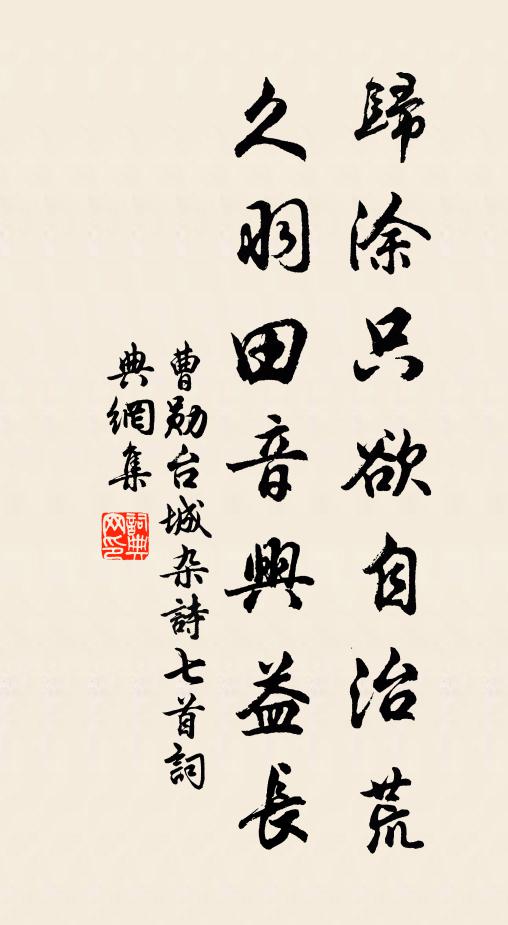 歸涂只欲自治荒
久羽田音興益長
曹勛台城杂詩七首詞
典網集
詞典
网印